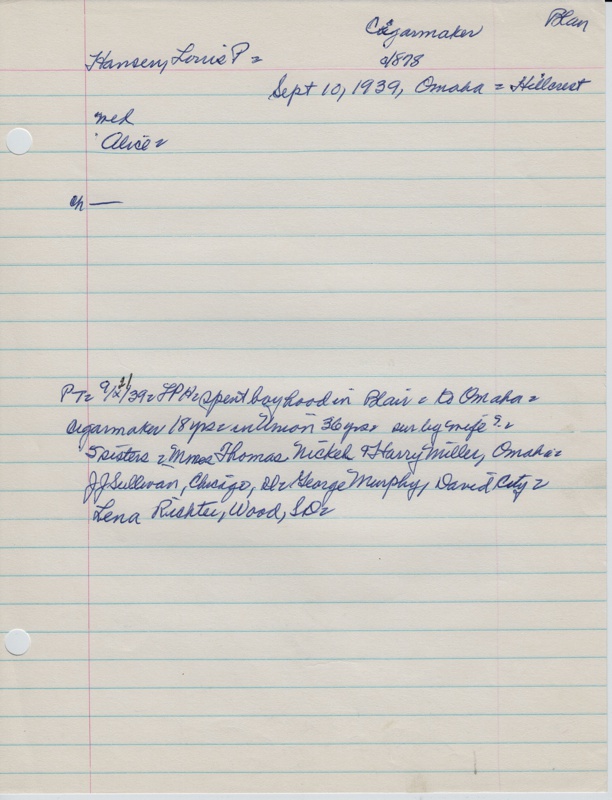 Blair
Cigarmaker
Hansen, Louis P =
c/1878
Sept 10, 1939, Omaha = Hillcrest
md
Alice =
ch —
PT= 9/21/39= LPH= spent boyhood in Blair = to Omaha =
cigarmaker 18 yrs = in Union 36 yrs = sur by wife? =
5 sisters = Mmes Thomas Nickel & Harry Miller, Omaha =
J J Sullivan, Chicago, = George Murphy, David City =
Lena Richter, Wood, SD =